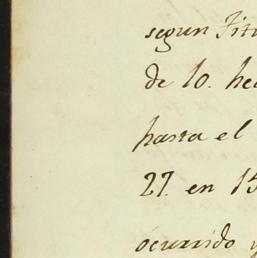 segun Titu
de 10. hec
hasta el
27. en 15
ocurrido y